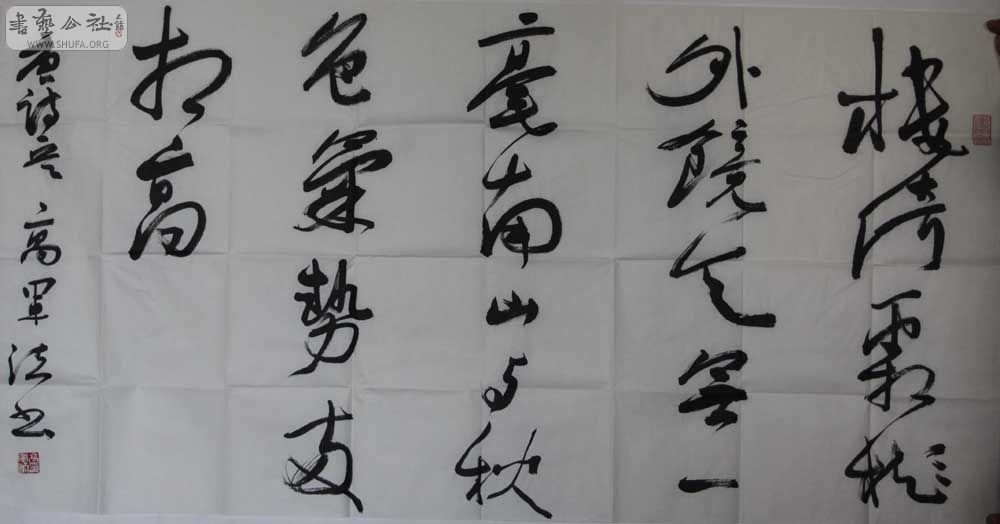 書藝公社
WWW.SHUFA.ORG
樓倚霜樹
外鏡天無一
毫南山与秋
色氣勢兩
相高
唐诗 高軍法书